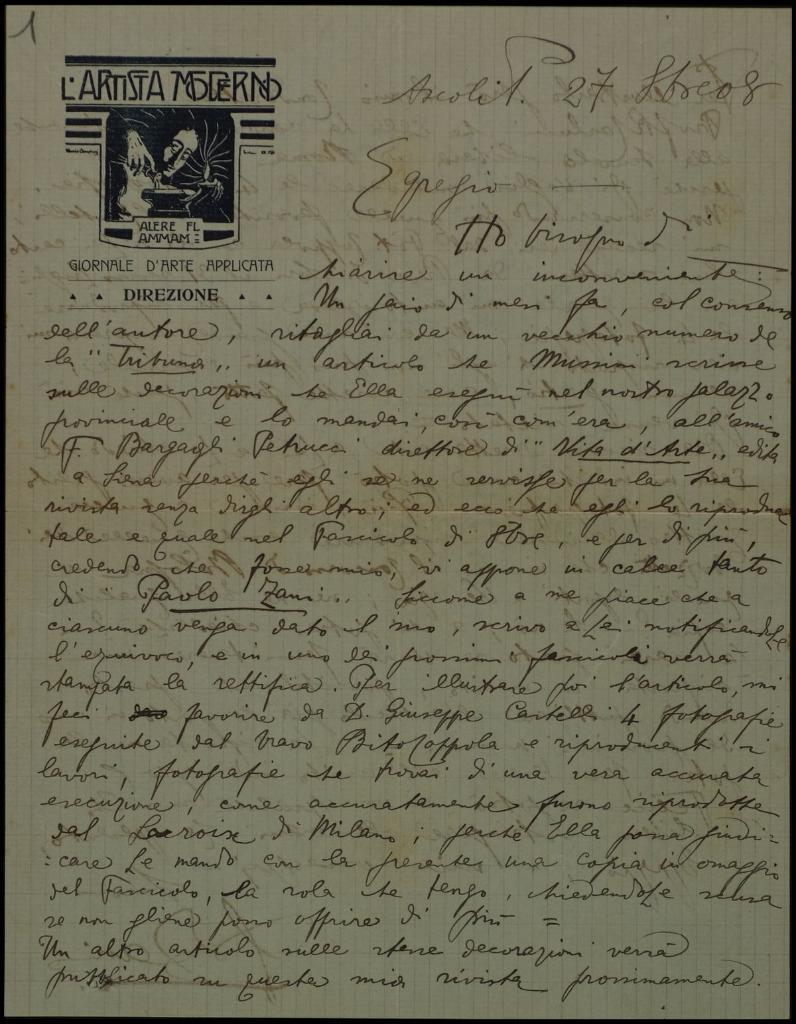 1
L'ARTISTA MODERNO
ALERE FL
AMMAM
GIORNALE D'ARTE APPLICATA
DIREZIONE
Ascoli P. 27 8bre 08
Egregio
Ho bisogno di
chiarire un inconveniente:
Un paio di mesi fa, col consenso
dell'autore, ritagliai da un vecchio numero de
la "Tribuna" un articolo che Mussini scrisse
sulle decorazioni che Ella eseguì nel nostro palazzo
provinciale e lo mandai, così com'era, all'amico
F. Bargagli Petrucci direttore di "Vita d'Arte" edita
a Siena perchè egli se ne servisse per la sua
rivista senza dirgli altro; ed ecco che egli lo riproduce
tale e quale nel Fascicolo di 8bre, e per di più,
credendo che fosse mio, vi appone in calce tanto
di "Paolo Zani". Siccome a me piace che a
ciascuno venga dato il suo, scrivo a Lei notificandole
l'equivoco, e in uno dei prossimi fascicoli verrà
stampata la rettifica. Per illustrare poi l'articolo, mi
feci favorire da D. Giuseppe Castelli 4 fotografie
eseguite dal bravo Bitocoppola e riproducenti i
lavori, fotografie che trovai di una vera accurata
esecuzione, come accuratamente furono riprodotte
dal Lacroix di Milano; perchè Ella possa giudi=
=care Le mando con la presente una copia in omaggio
del Fascicolo, la sola che tengo, chiedendole scusa
se non gliene posso offrire di più =
Un altro articolo sulle stesse decorazioni verrà
pubblicato su questa mia rivista prossimamente.